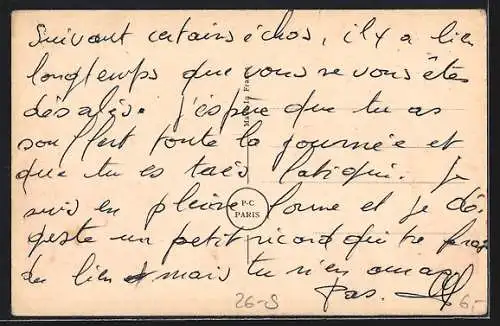 Suivant certains échos, il y a bien
longtemps que vous ne vous êtes
désalés. j'espère que tu as
souffert toute la journée et
que tu es très fatigué. Je
suis en pleine forme et je dé-
guste un petit ricard qui te ferai
du bien mais tu n'en auras
pas.
Made in France
P-C
PARIS
26-S
6-